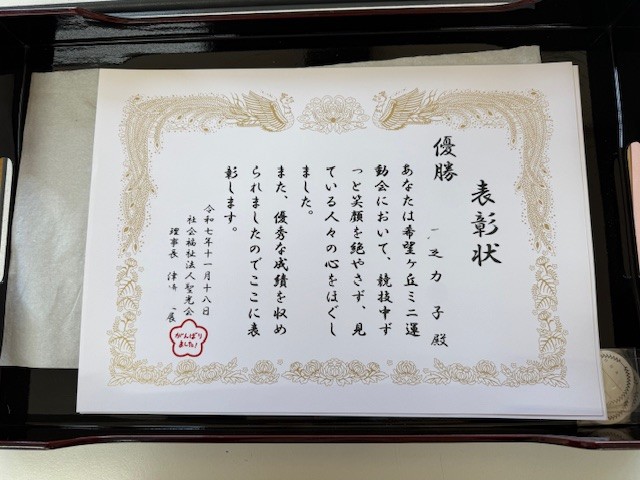 表彰状
優勝
力 子 殿
あなたは希望ヶ丘ミニ運
動会において、競技中ず
っと笑顔を絶やさず、見
ている人々の心をほぐし
ました。
また、優秀な成績を収め
られましたのでここに表
彰します。
令和七年十一月十八日
社会福祉法人聖光会
理事長 津
がんばり
ました!